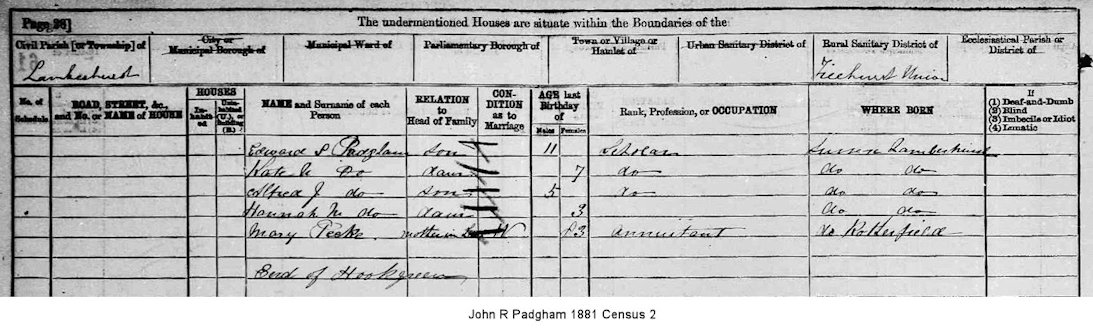 Page 26] The undermentioned Houses are situate within the Boundaries of the
Civil Parish [or Township] of City or Municipal Borough of Municipal Ward of Parliamentary Borough of Town or Village or Hamlet of Urban Sanitary District of Rural Sanitary District of Ecclesiastical Parish or District of
Lamberhurst Ticehurst Union
No. of Schedule ROAD, STREET, &c., and No. or NAME of HOUSE HOUSES Inhabited Uninhabited (U.), or Building (B.) NAME and Surname of each Person RELATION to Head of Family CONDITION as to Marriage AGE last Birthday of Males Females Rank, Profession, or OCCUPATION WHERE BORN If (1) Deaf-and-Dumb (2) Blind (3) Imbecile or Idiot (4) Lunatic
Edward Padgham son 11 Scholar Sussex Lamberhurst
Kate do daur 7 do do do
Alfred J. do son 5 do do do
Hannah M. do daur 3 do do
Mary Peeke mother in Law W 83 annuitant do Rotherfield
End of Hookgreen
John R Padgham 1881 Census 2